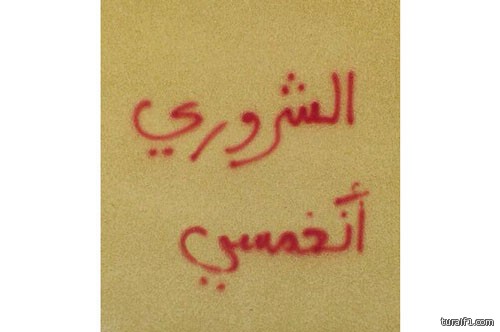 الشروري
أنغمسي
turaif1.com